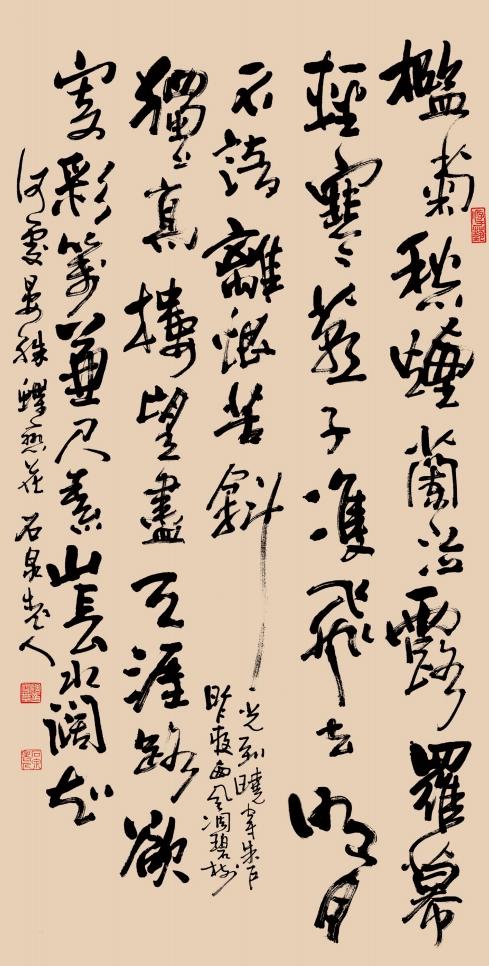 檻菊愁煙蘭泣露羅幕
輕寒燕子雙飛去明月
不諳離恨苦斜
光到曉穿朱户
昨夜西風凋碧樹
獨上高樓望盡天涯路欲
寄彩箋兼尺素山長水闊知
何處晏殊蝶戀花 石泉人